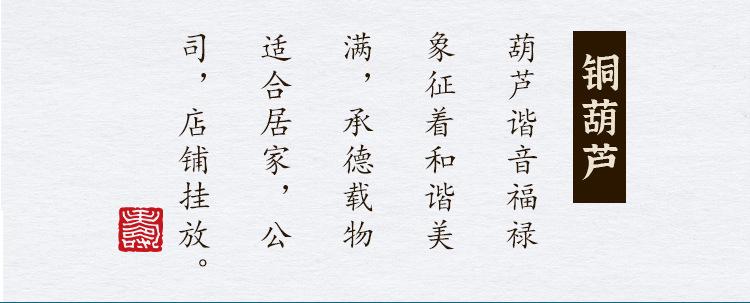 铜葫芦
葫芦谐音福禄
象征着和谐美
满，承德载物
适合居家，公
司，店铺挂放。